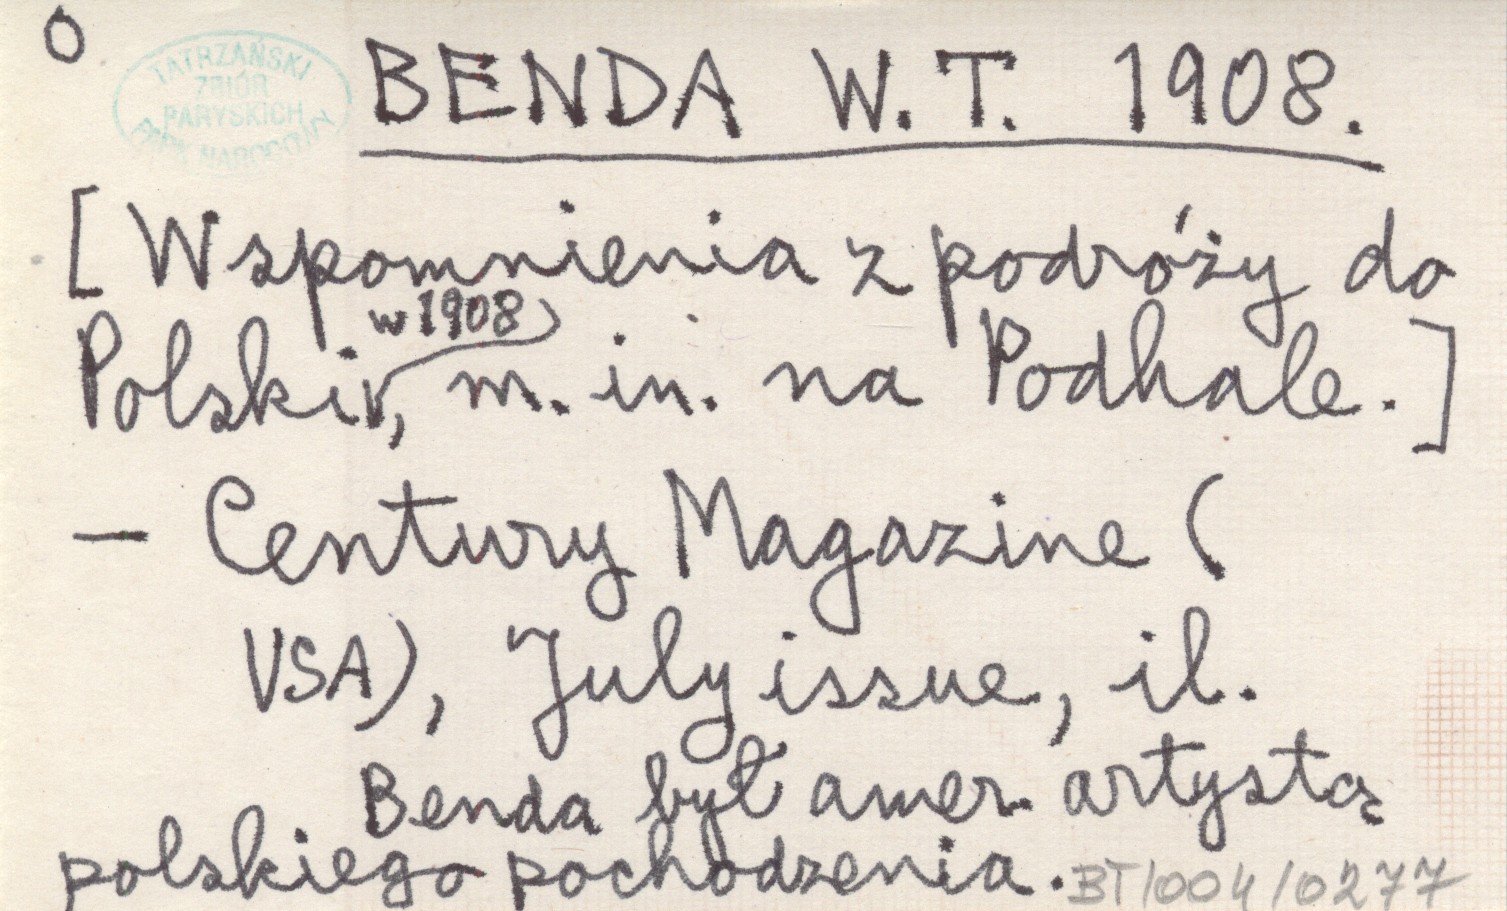 O
TATRZAŃSKI
ZBIÓR
PARYSKICH
PARK NARODOWY
BENDA W.T. 1908.
[Wspomnienia z podróży do
w 1908
Polski, m. in. na Podhale.]
— Century Magazine (
USA), July issue, il.
Benda był amer. artystą
polskiego pochodzenia.
BT/004/0277